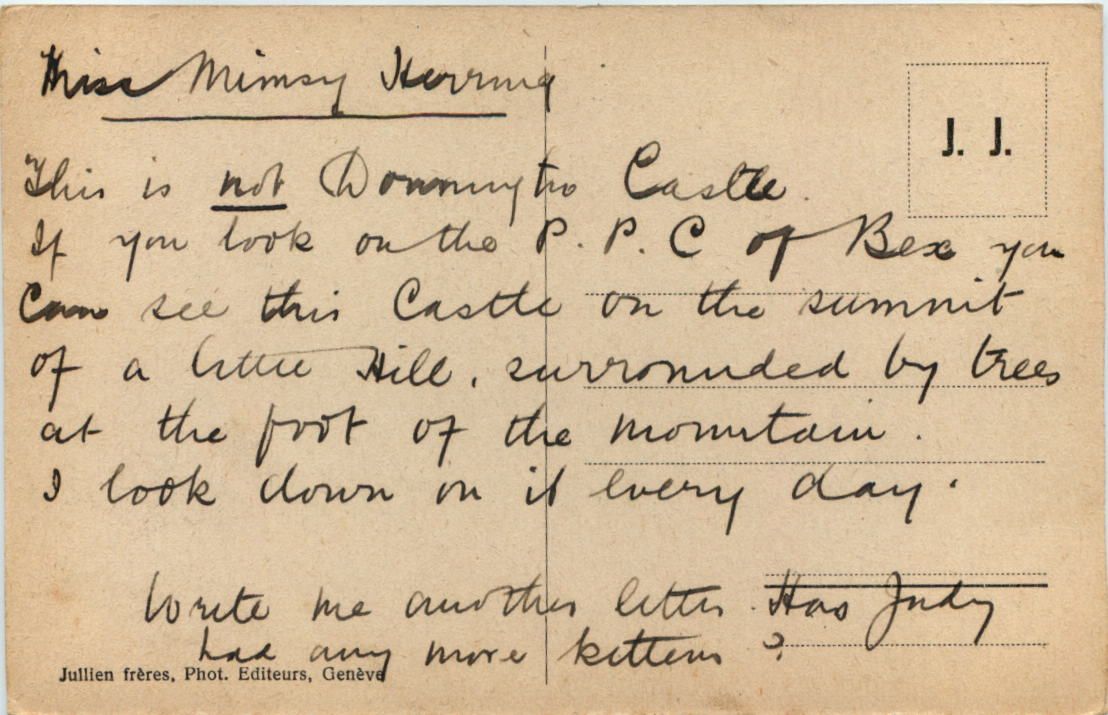 Miss Mimsy Herring
J. J.
This is not Donnington Castle.
If you look on the P. P. C of Bex you
Can see this Castle on the summit
of a little Hill, surrounded by trees
at the foot of the mountain.
I look down on it every day.
Write me another letter. Has Judy
had any more kittens?
Jullien frères, Phot. Editeurs, Genève